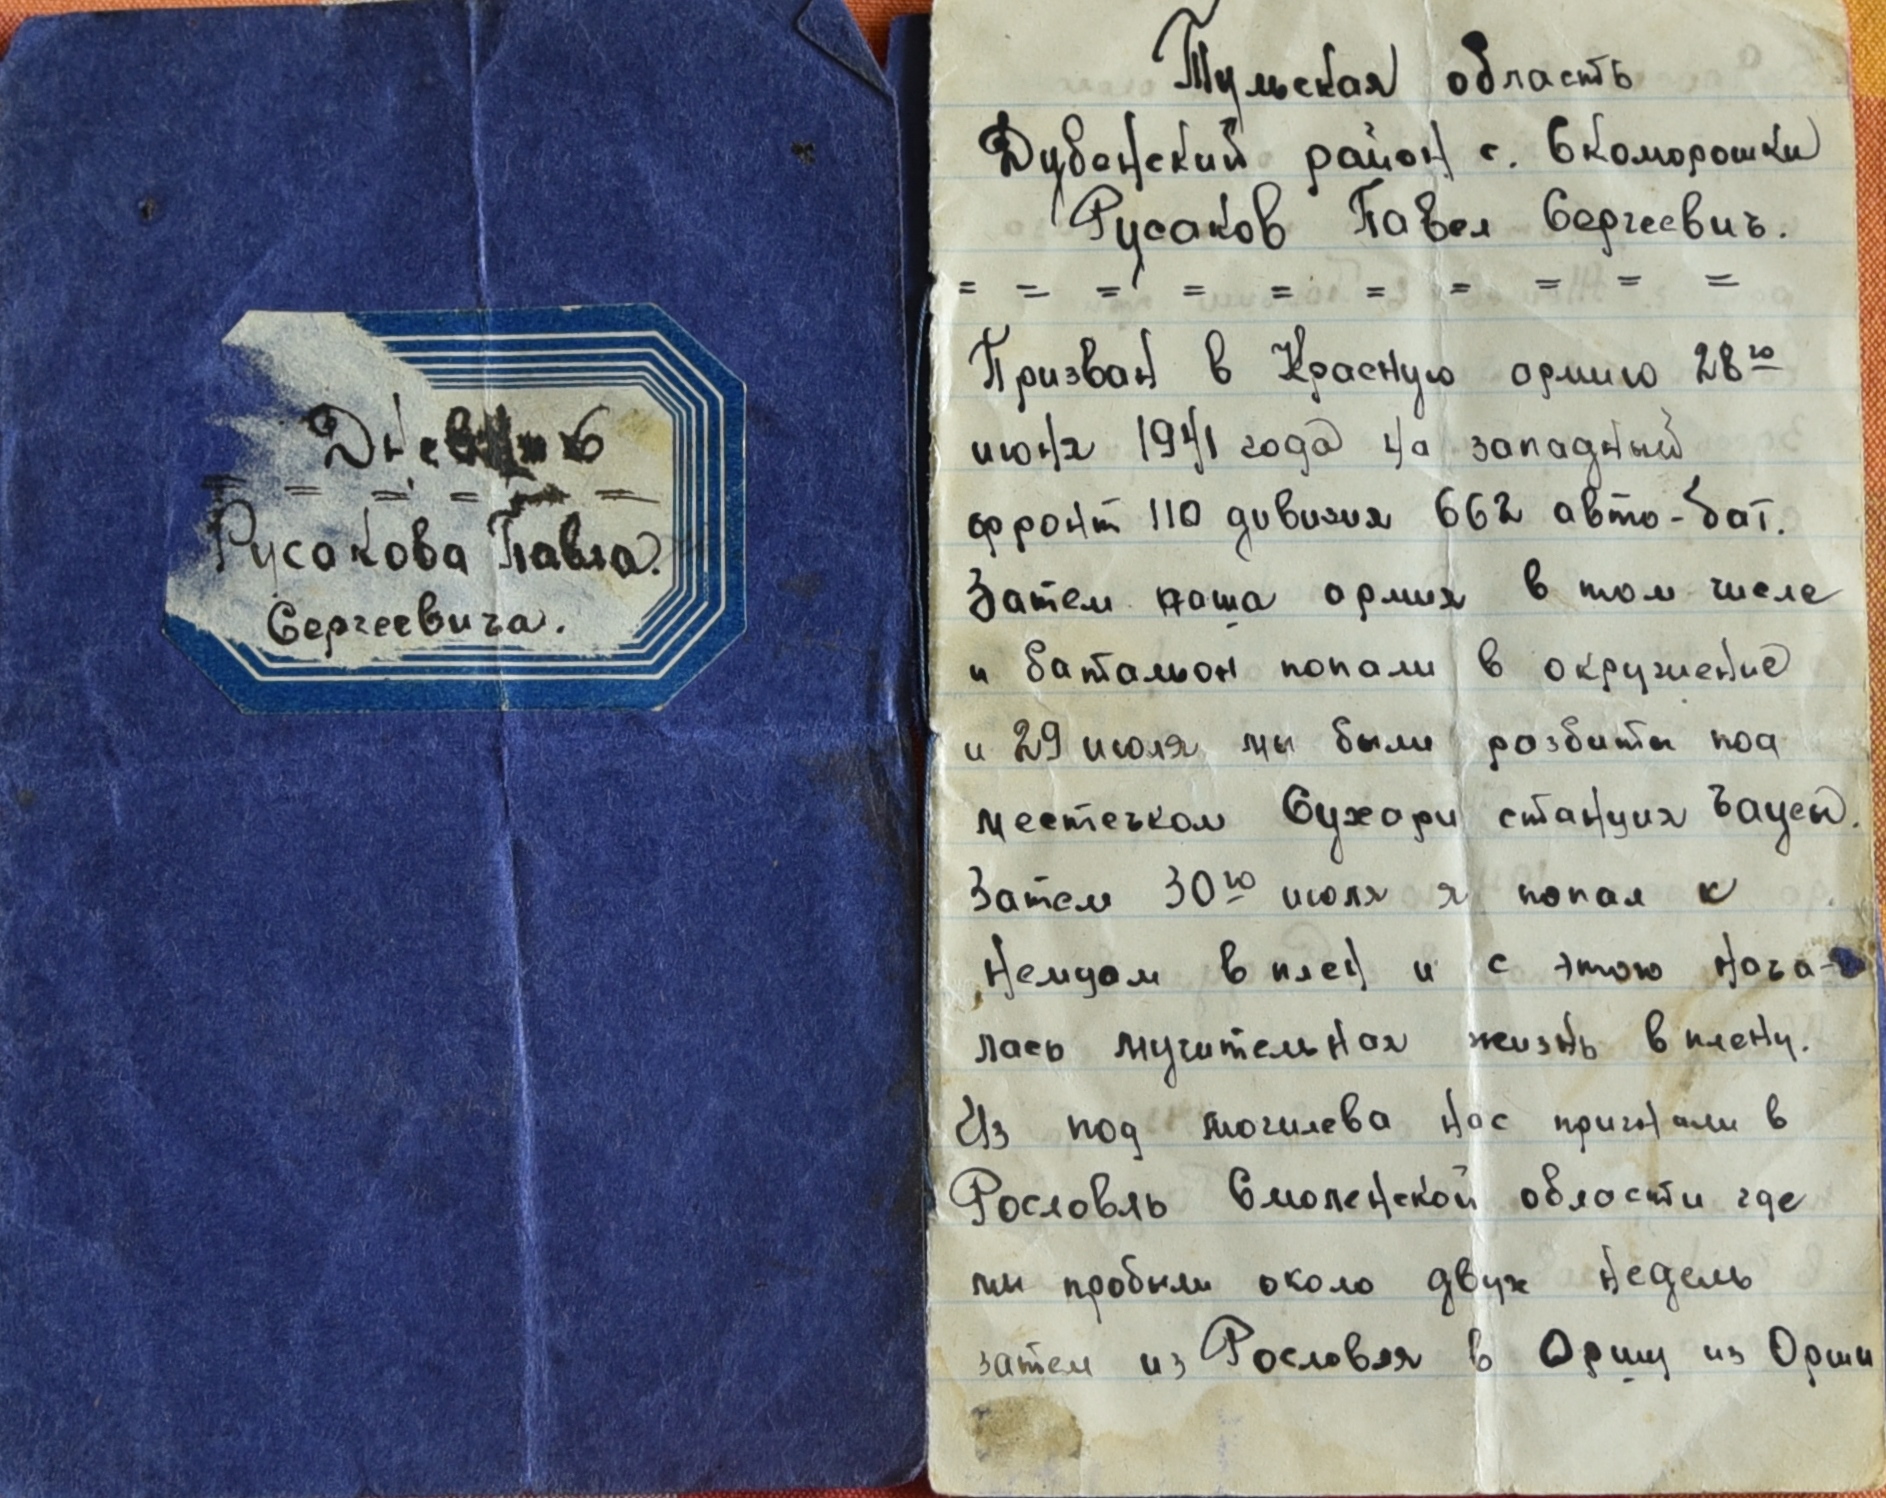 Дневник
= = = = = =
Русакова Павла.
Сергеевича.
Тульская область
Дубенский район с. Скоморошки
Русаков Павел Сергеевич.
= = = = = = = = = =
Призван в Красную армию 28го
июня 1941 года на западный
фронт 110 дивизия 662 авто-бат.
Затем наша армия в том числе
и батальон попали в окружение
и 29 июля мы были разбиты под
местечком Сухари станция Чаусы.
Затем 30го июля я попал к
немцам в плен и с этого нача-
лась мучительная жизнь в плену.
Из под могилева нас пригнали в
Рословль Смоленской области где
мы пробыли около двух недель
затем из Рословля в Оршу из Орши